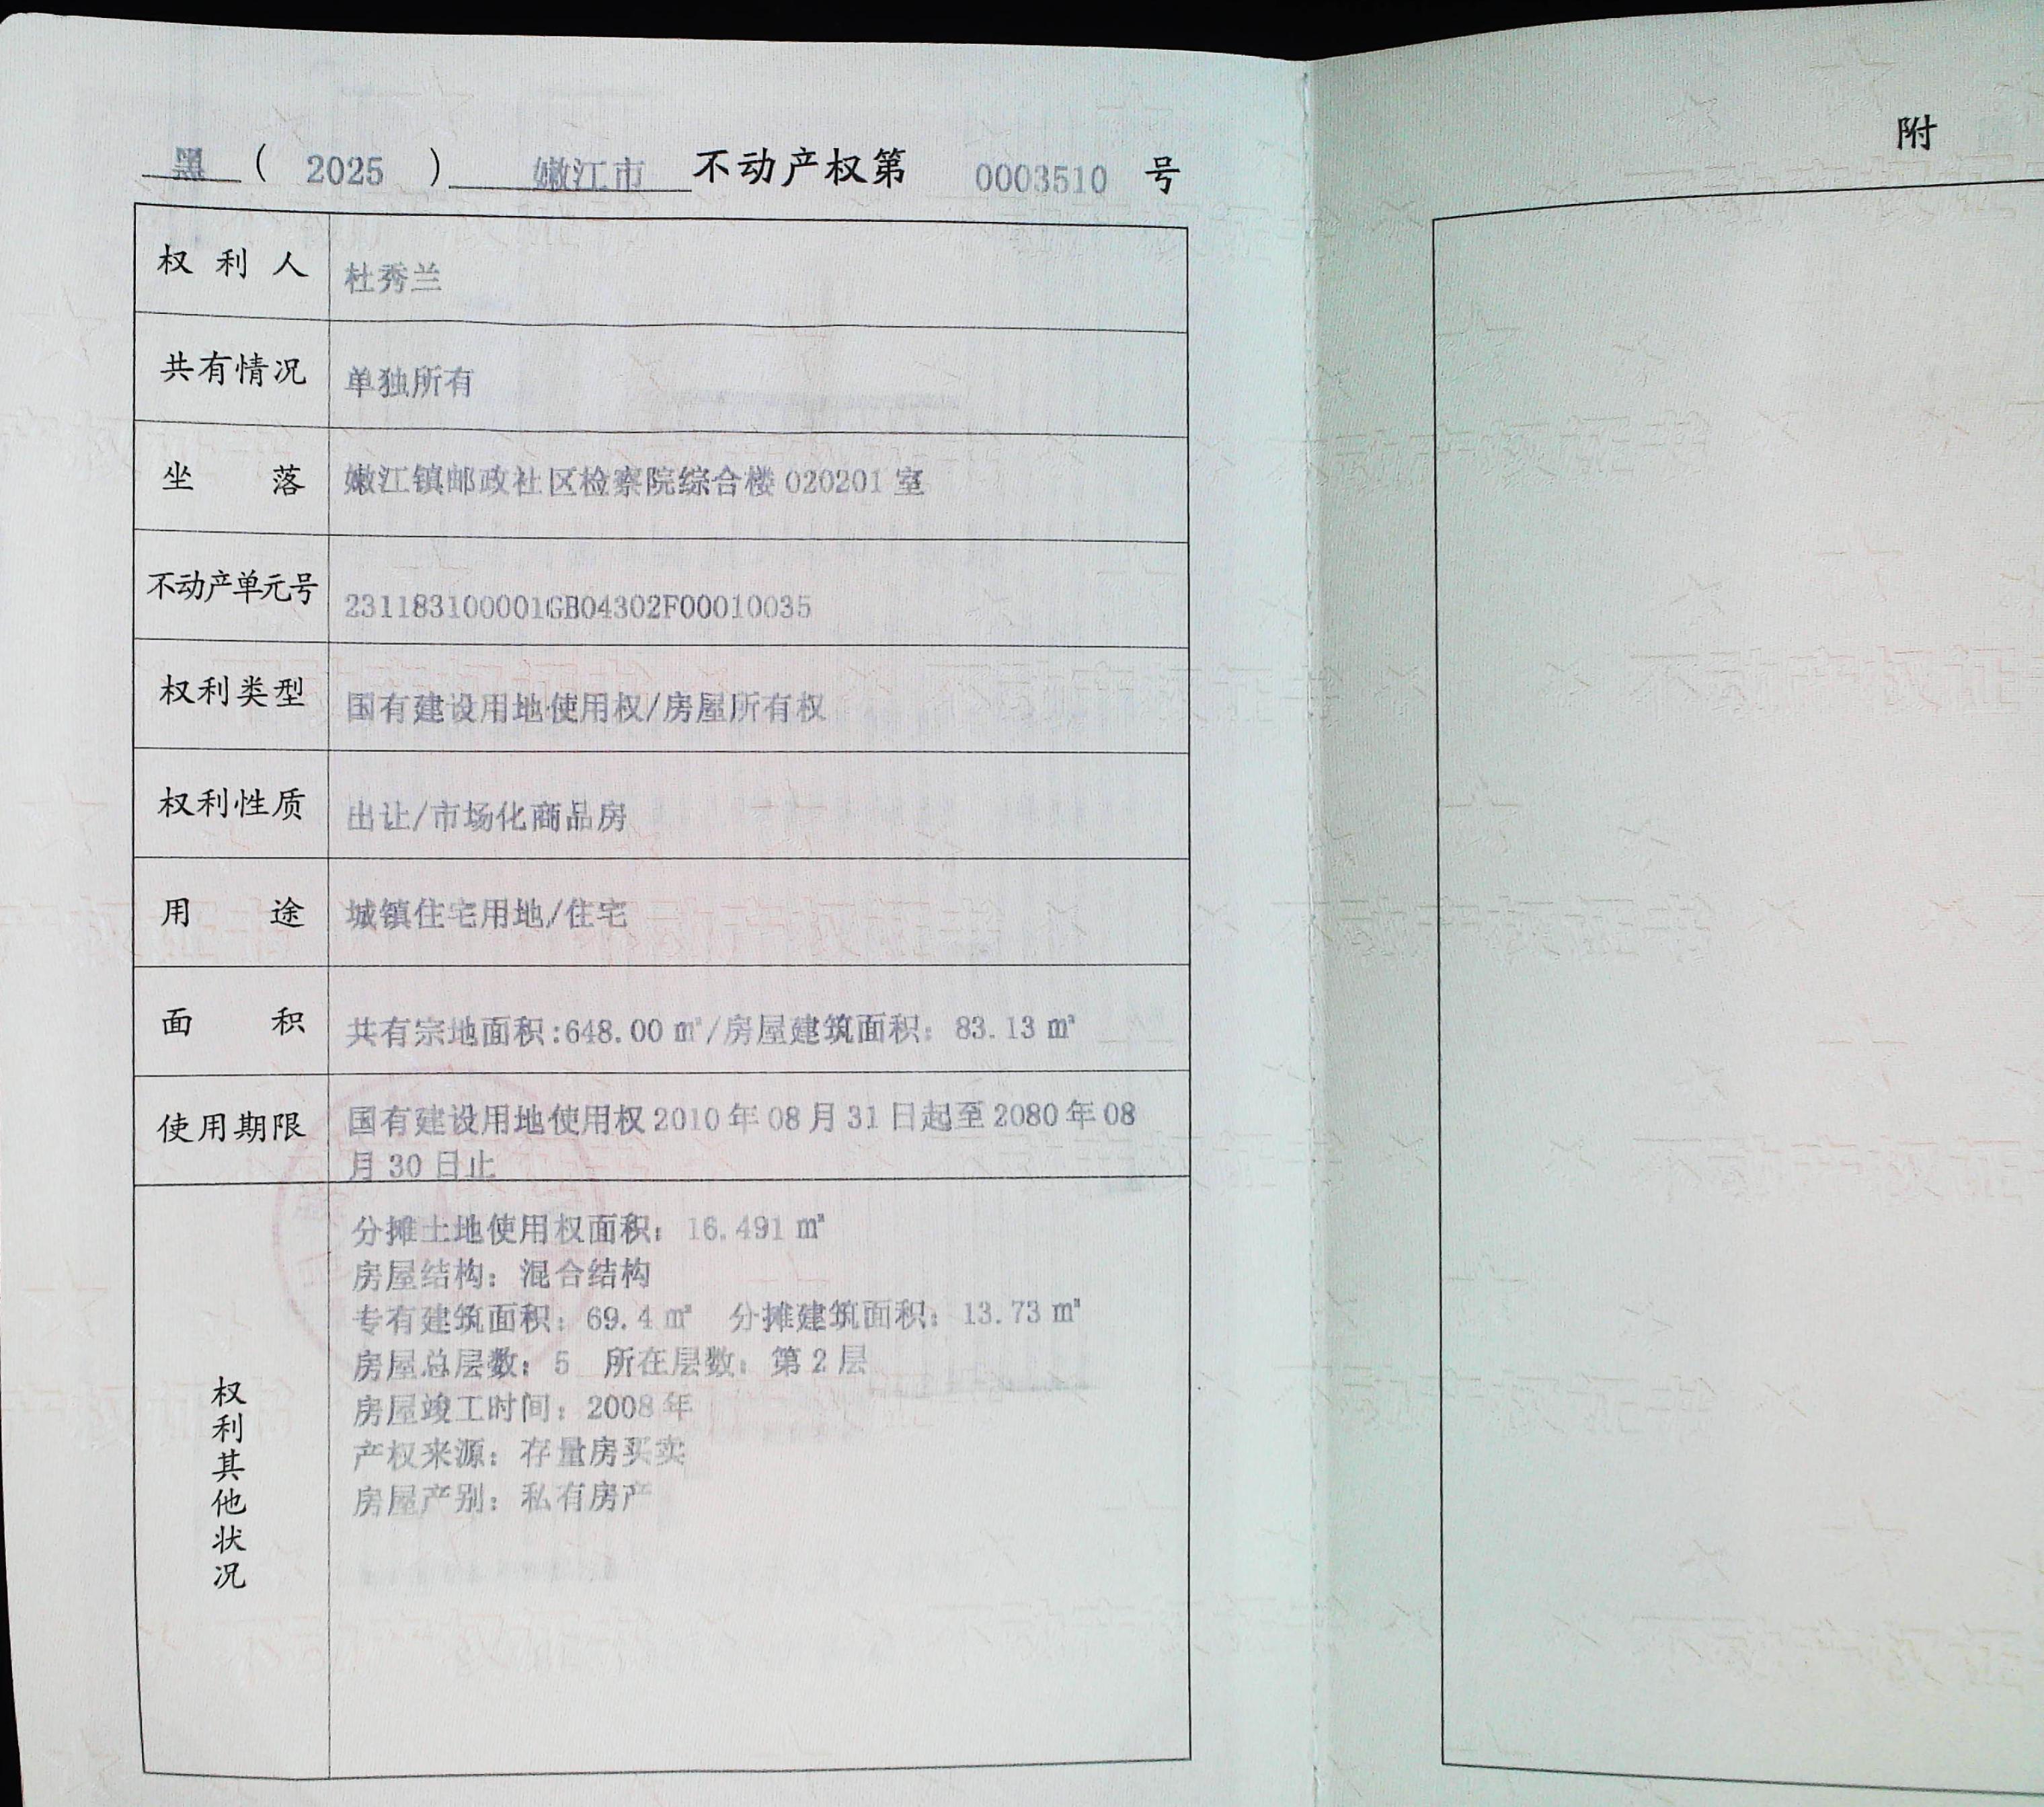 黑 ( 2025 ) 嫩江市 不动产权第 0003510 号
附
权利人 杜秀兰
共有情况 单独所有
坐落 嫩江镇邮政社区检察院综合楼 020201 室
不动产单元号 231183100001GB04302F00010035
权利类型 国有建设用地使用权/房屋所有权
权利性质 出让/市场化商品房
用途 城镇住宅用地/住宅
面积 共有宗地面积:648.00 ㎡/房屋建筑面积: 83.13 ㎡
使用期限 国有建设用地使用权 2010 年 08 月 31 日起至 2080 年 08
月 30 日止
权利其他状况
分摊土地使用权面积: 16.491 ㎡
房屋结构: 混合结构
专有建筑面积: 69.4 ㎡ 分摊建筑面积: 13.73 ㎡
房屋总层数: 5 所在层数: 第 2 层
房屋竣工时间: 2008 年
产权来源: 存量房买卖
房屋产别: 私有房产